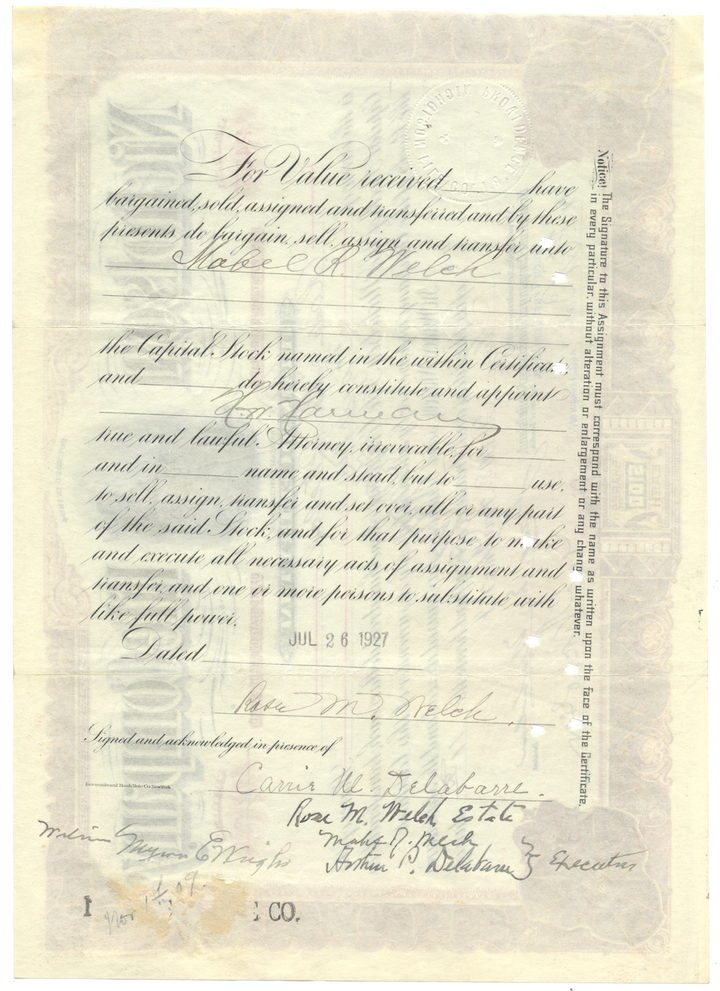 For Value received ______ have
bargained, sold, assigned and transferred and by these
presents do bargain, sell, assign and transfer unto
Mabel R. Welch
the Capital Stock named in the within Certificate,
and ______ do hereby constitute and appoint
true and lawful Attorney, irrevocable, for ______
and in ______ name and stead, but to ______ use,
to sell, assign, transfer and set over, all or any part
of the said Stock, and for that purpose to make
and execute all necessary acts of assignment and
transfer, and one or more persons to substitute with
like full power.
Dated JUL 26 1927
Rose M. Welch.
Signed and acknowledged in presence of
Carrie W. Delabarre.
Rose M. Welch Estate
Mabel R. Welch
Arthur P. Delabarre } Executors
Myron E Wright
CO.
Notice! The Signature to this Assignment must correspond with the name as written upon the face of the Certificate,
in every particular, without alteration or enlargement or any change whatever.